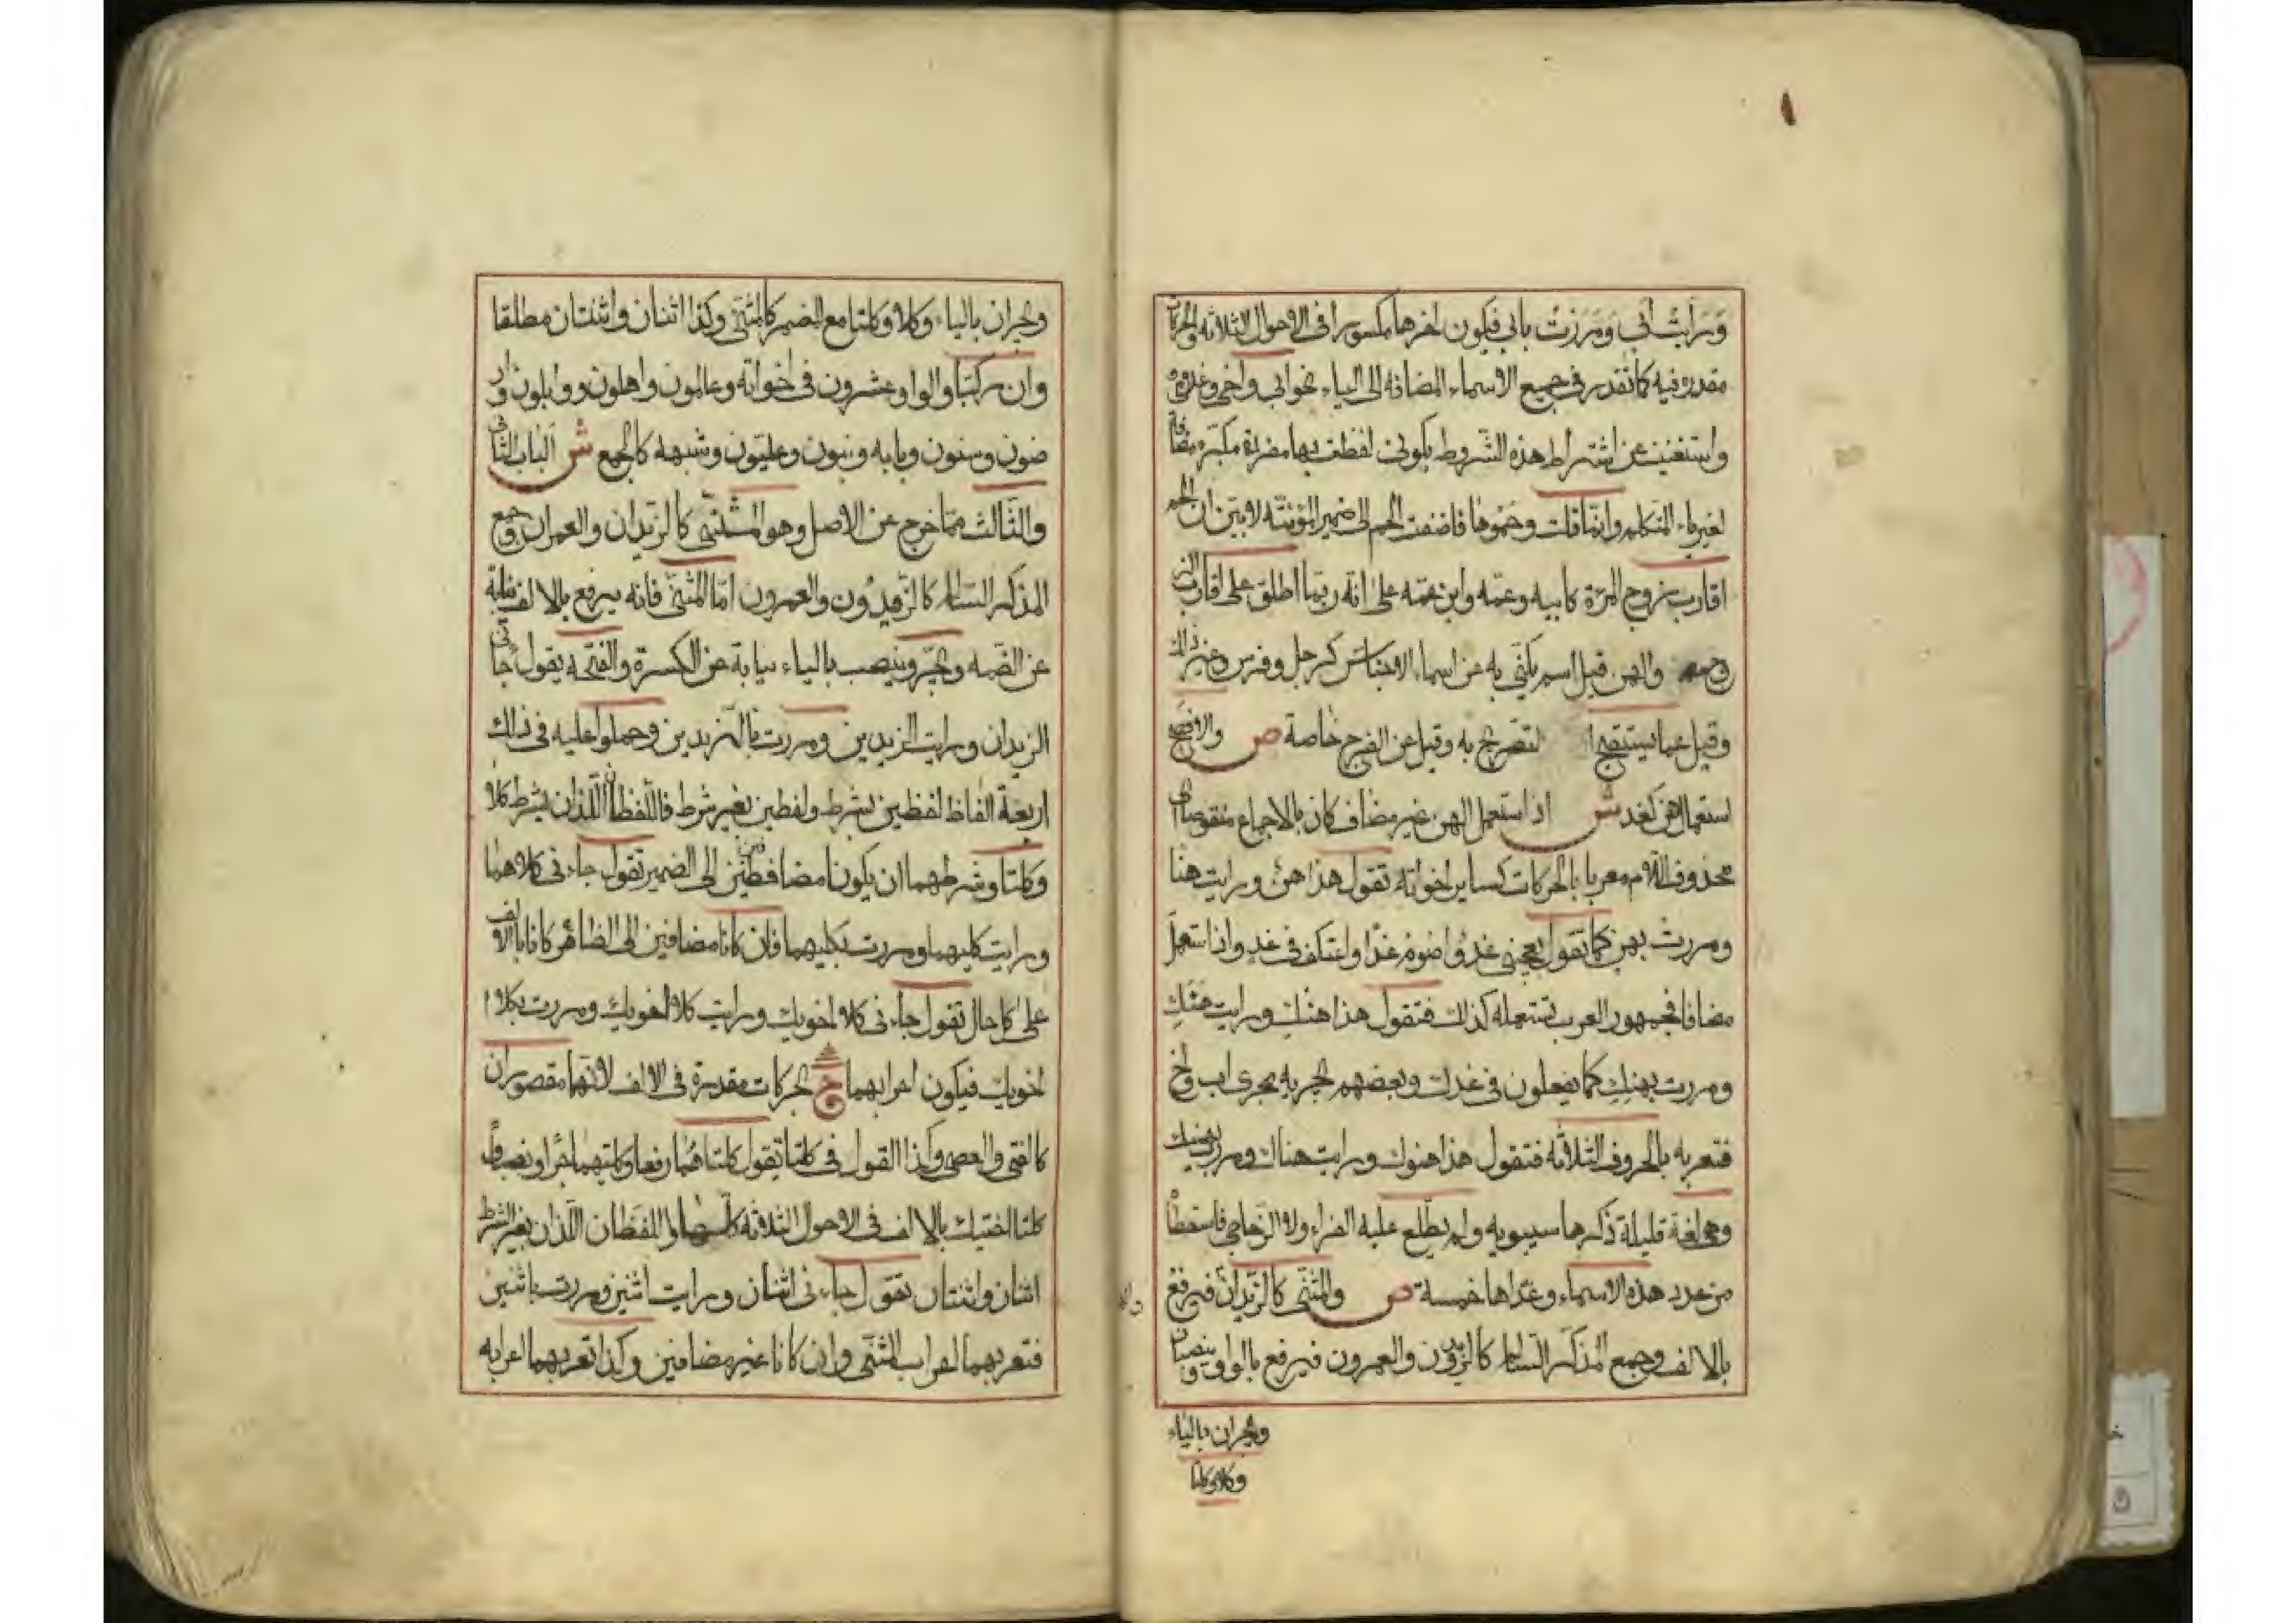 ورايت أبي ومررت بابي فيكون اخرها مكسورا في الاحوال الثلاثه والحركات
مقدره فيه كما تقدر في جميع الاسماء المضافه الى الياء نحو ابي واخي وغلامي
واستغنيت عن اشتراط هذه الشروط بكوني لفظت بها مفردة مكبّره مضافة
لغير ياء المتكلم وانما قلت وحموها فاضفت الحم الى ضمير المؤنثه لابين ان الحم
اقارب زوج المرة كابيه وعمه وابن عمه على انه ربما اطلق على اقارب
والهن قيل اسم يكنى به عن اسماء الاجناس كرجل وفرس وغير ذلك
وقيل عما يستقبح التصريح به وقيل عن الفرج خاصة ص والافصح
استعمال هن كغد ش اذا استعمل الهن غير مضاف كان بالاجماع منقوصا اي
محذوف اللام معربا بالحركات كساير اخواته تقول هذا هن ورايت هنا
ومررت بهن كما تقول يعجبني غد واصوم غدا واعتكف في غد واذا استعمل
مضافا فجمهور العرب تستعمله كذلك فتقول هذا هنك ورايت هنك
ومررت بهنك كما يفعلون في غدك وبعضهم يجريه مجرى اب واخ
فتعربه بالحروف الثلاثه فتقول هذا هنوك ورايت هناك ومررت بهنيك
وهي لغة قليلة ذكرها سيبويه ولم يطلع عليه الفراء ولا الزجاجي فاسقطا
من عدد هذه الاسماء وعداها خمسة ص والمثنى كالزيدان فيرفع
بالالف وجمع المذكر السالم كالزيدون والعمرون فيرفع بالواو وينصبان
ويجران بالياء
وكلا وكلتا
ويجران بالياء وكلا وكلتا مع الضمير كالمثنى وكذا اثنان واثنتان مطلقا
وان ركبتا والوا وعشرون في اخواته وعالمون واهلون ووابلون وار
ضون وسنون وبابه وبنون وعليون وشبهه كالجمع ش الباب الثاني
والثالث مما خرج عن الاصل وهو المثنى كالزيدان والعمران وجمع
المذكر السالم كالزيدون والعمرون امّا المثنى فانه يرفع بالالف نيابة
عن الضمه ويجر وينصب بالياء نيابة عن الكسرة والفتحه يقول جاني
الزيدان ورايت الزيدين ومررت بالزيدين وحملوا عليه في ذلك
اربعة الفاظ لفظين بشرط ولفظين بغير شرط فاللفظان اللذان بشرط كلا
وكلتا وشرطهما ان يكونا مضافين الى الضمير تقول جاءني كلاهما
ورايت كليهما ومررت بكليهما فان كانا مضافين الى الظاهر كانا بالالف
على كل حال تقول جاءني كلا اخويك ورايت كلا اخويك ومررت بكلا
اخويك فيكون اعرابهما ح بحركات مقدرة في الالف لانهما مقصوران
كالفتى والعصى وكذا القول في كلتا تقول كلتاهما رفعا وكلتيهما جرا ونصبا و
كلتا اختيك بالالف في الاحوال الثلاثه واللفظان اللذان بغير شرط
اثنان واثنتان تقول جاءني اثنان ورايت اثنين ومررت باثنين
فتعربهما اعراب المثنى وان كانا غير مضافين وكذا تعربهما اعرابه